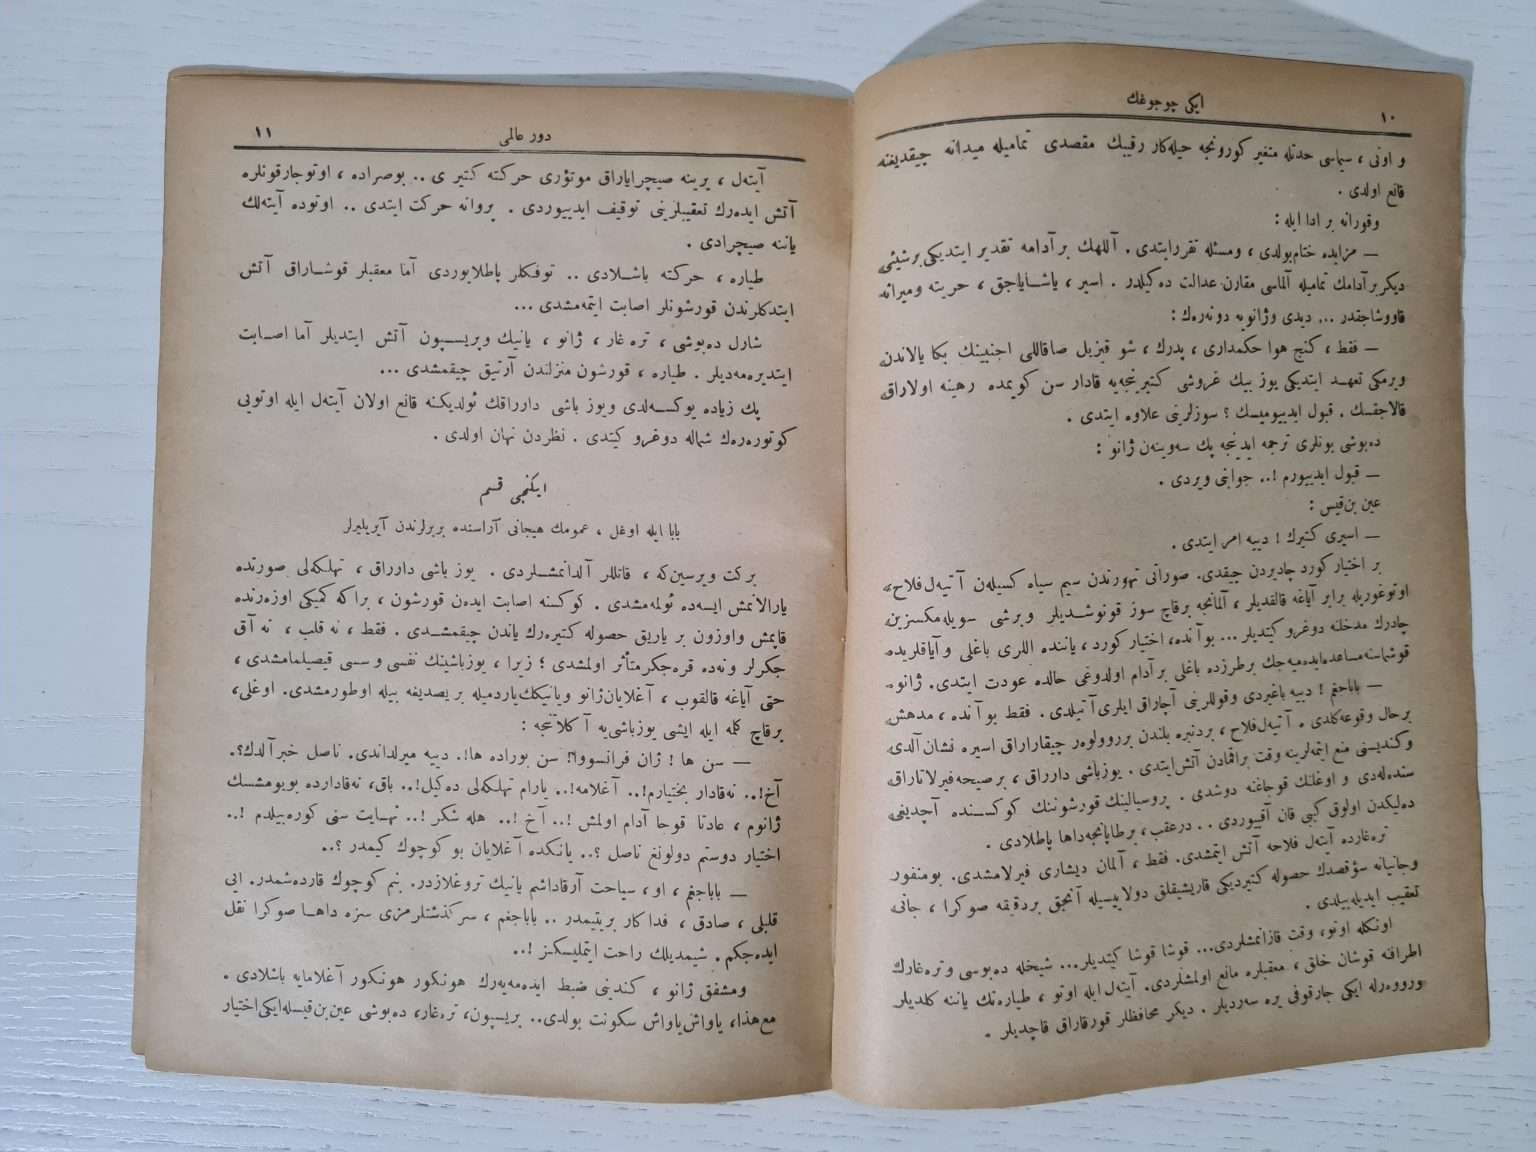 ١٠
ايكی چوجوغك
و اونی ، سیماسی حدتله متغیر كورونجه حیله‌كار رقیبك مقصدی تمامیله میدانه چیقدیغنه
قانع اولدی .
وقورانه بر ادا ایله :
— مزایده ختام‌بولدی ، ومسئله تقررایتدی . آللهك بر آدامه تقدیر ایتدیكی‌برشیئی
دیكر برآدامك تمامیله آلماسی مقارن عدالت ده‌كیلدر . اسیر ، یاشایاجق ، حریته ومیرانه
قاووشاجقدر ... دیدی وژانویه دونه‌رك :
— فقط ، كنج هوا حكمداری ، پدرك ، شو قیزیل صاقاللی اجنبینك بكا یالاندن
ویرمكی تعهد ایتدیكی یوز بیك غروشی كتیرینجه‌یه قادار سن كویمده رهینه اولاراق
قالاجقسك . قبول ایدییومیسك ؟ سوزلرینی علاوه ایتدی .
ده‌بوشی بونلری ترجمه ایدینجه پك سه‌وینه‌ن ژانو :
— قبول ایدییورم !.. جوابنی ویردی .
عین بن‌قیس :
— اسیری كتیرك ! دییه امر ایتدی .
بر اختیار كورد چادیردن چیقدی. صوراتی تهوّرندن سیم سیاه كسیله‌ن آتیه‌ل فلاح،
اوتوغوریله برابر آیاغه قالقدیلر ، آلمانجه برقاچ سوز قونوشدیلر وبرشی سویله‌مكسزین
چادرك مدخلنه دوغرو كیتدیلر ... بو آنده، اختیار كورد ، یاننده اللری باغلی و آیاقلریده
قوشماسنه‌مساعده‌ایده‌میه‌جك برطرزده باغلی بر آدام اولدوغی حالده عودت ایتدی. ژانو.
— باباجغم ! دییه باغیردی وقوللرینی آچاراق ایلری آتیلدی . فقط بو آنده ، مدهش
برحال وقوعه‌كلدی . آتیه‌ل‌فلاح ، بردنبره بلندن بررووله‌ور چیقارارراق اسیره نشان آلدی
وكندیسنی منع ایتمه‌لرینه وقت براقمادن آتش‌ایتدی . یوزباشی دارراق ، برصیحه‌فیرلاتاراق
سنده‌له‌دی و اوغلنك قوجاغنه دوشدی . پروسیالینك قورشوننك كوكسنده آچدیغی
ده‌لیكدن اولوق كبی قان آقییوردی . . درعقب، برطاپانجه‌داها پاطلادی .
تره‌غارده آیته‌ل فلاحه آتش ایتمشدی. فقط ، آلمان دیشاری فیرلامشدی. بومنفور
وجانیانه سؤقصدك حصوله كتیردیكی قاریشیقلق دولاییسیله آنجق بردقیقه صوكرا ، جانی
تعقیب ایدیله‌بیلدی .
اونكله اوتو، وقت قازانمشلردی... قوشا قوشا كیتدیلر... شیخله ده‌بوسی وتره‌غارك
اطرافنه قوشان خلق ، معقبلره مانع اولمشلردی. آیته‌ل ایله اوتو ، طیاره‌نك یاننه كلدیلر
ورووه‌رله ایكی جارقوفی یره سه‌ردیلر . دیكر محافظلر قورقاراق قاچدیلر .
دور عالمی
١١
آیته‌ل ، یرینه صیچرایاراق موتوْری حركته كتیر ی .. بوصراده ، اوتوجارقونلره
آتش ایده‌رك تعقیبلرینی توقیف ایدییوردی . پروانه حركت ایتدی .. اوتوده آیته‌لك
یاننه صیچرادی .
طیاره ، حركته باشلادی .. توفنكلر پاطلایوردی آما معقبلر قوشاراق آتش
ایتدكلرندن قورشونلر اصابت ایتمه‌مشدی ...
شارل ده‌بوشی ، تره غار ، ژانو ، یانیك وپریسپون آتش ایتدیلر آما اصابت
ایتدیره‌مه‌دیلر . طیاره ، قورشون منزلندن آرتیق چیقمشدی ...
پك زیاده یوكسه‌لدی ویوز باشی دارراقك ئولدیكنه قانع اولان آیته‌ل ایله اوتویی
كوتوره‌رك شماله دوغرو كیتدی . نظردن نهان اولدی .
ایكنجی قسم
بابا ایله اوغل ، عمومك هیجانی آراسنده بربرلرندن آیریلیرلر
بركت ویرسین‌كه ، قاتللر آلدانمشلردی . یوز باشی دارراق ، تهلكه‌لی صورتده
یارالانمش ایسه‌ده ئولمه‌مشدی . كوكسنه اصابت ایده‌ن قورشون ، براكه كمیكی اوزه‌رنده
قایمش واوزون بر یاریق حصوله كتیره‌رك یاندن چیقمشدی . فقط ، نه قلب ، نه آق
جكرلر ونه‌ده قره‌جكرمتأثر اولمشدی ؛ زیرا ، یوزباشینك نفسی و سسی قیصیلمامشدی ،
حتی آیاغه قالقوب ، آغلایان‌ژانو ویانیكك‌یاردمیله بر یصدیغه بیله اوطورمشدی. اوغلی،
برقاچ كلمه ایله ایشی یوزباشی‌یه آكلاتنجه :
— سن ها ! ژان فرانسووا! سن بوراده ها!. دییه میرلداندی. ناصل خبرآلدك؟.
آخ!.. نه‌قادار بختیارم!.. آغلامه!.. یارام تهلكه‌لی ده‌كیل!.. باق، نه‌قادارده بویومشسك
ژانوم ، عادتا قوجا آدام اولمش !.. آخ !.. هله شكر !.. نهایت سنی كوره‌بیلدم !..
اختیار دوستم دولونغ ناصل ؟.. یانكده آغلایان بو كوچوك كیمدر ؟..
— باباجغم ، او ، سیاحت آرقاداشم یانیك تروغلازدر. بنم كوچوك قارده‌شمدر. ایی
قلبلی ، صادق ، فدا كار بریتیمدر .. باباجغم ، سركذشتلرمزی سزه داها صوكرا نقل
ایده‌جكم . شیمدیلك راحت ایتملیسكز !..
ومشفق ژانو ، كندینی ضبط ایده‌مه‌یه‌رك هونكور هونكور آغلامایه باشلادی .
مع‌هذا، یاواش‌یاواش سكونت بولدی.. پریسپون، تره‌غار، ده‌بوشی عین‌بن‌قیسله‌ایكی‌اختیار